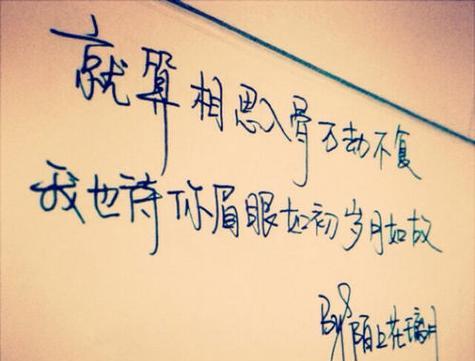 就算相思入骨万劫不复
我也待你眉眼如初岁月如故
By 陌上花